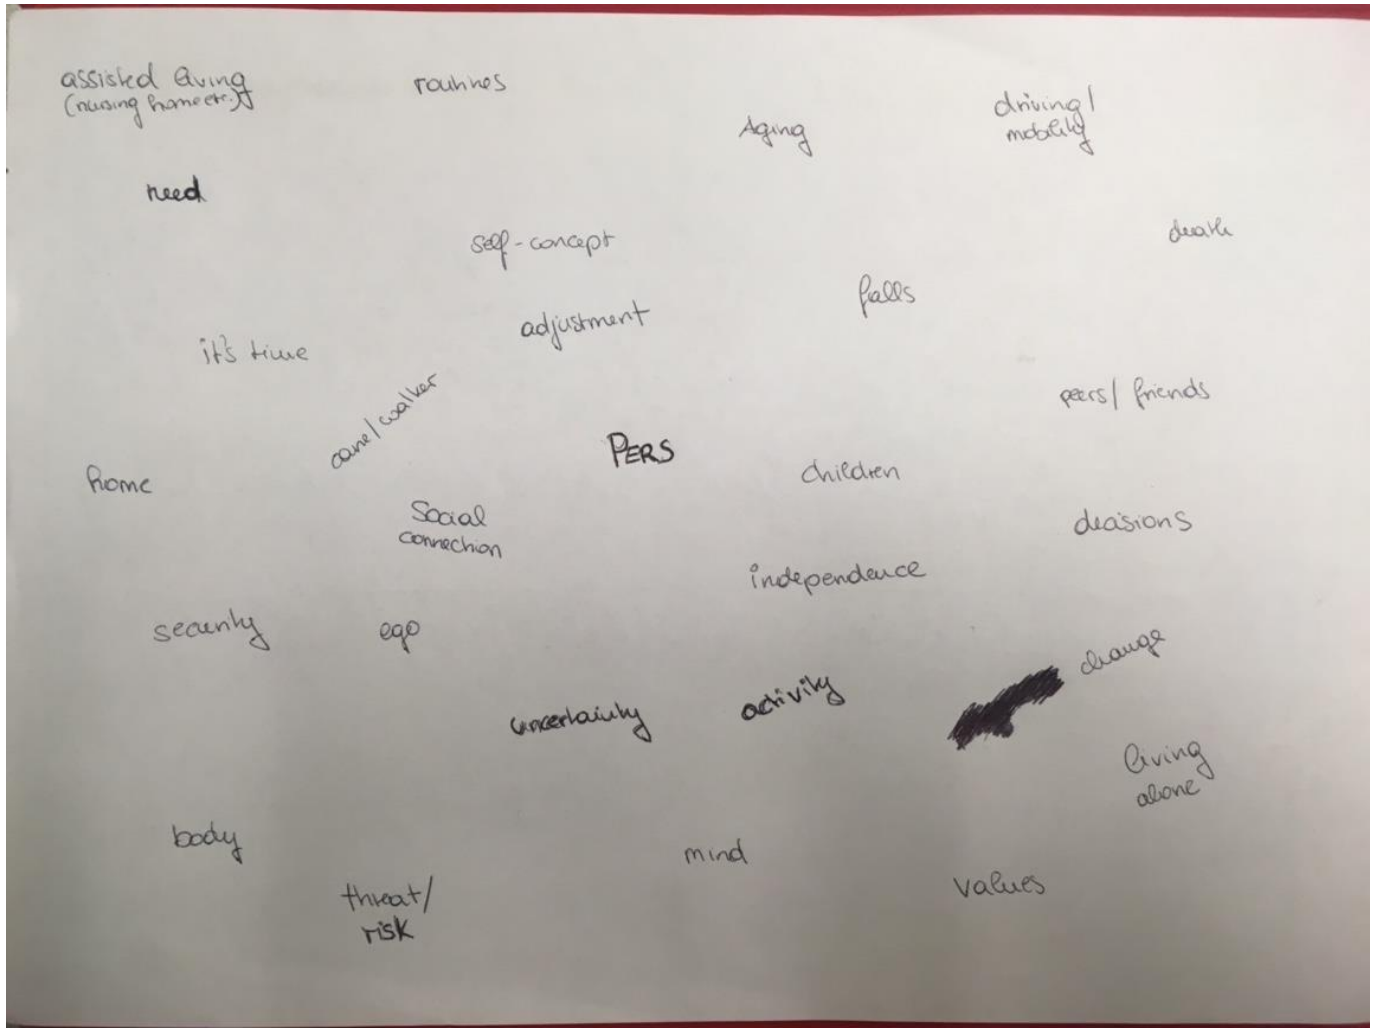 assisted living
(nursing home etc.)
routines
Aging
driving/
mobility
need
self-concept
death
falls
adjustment
it's time
cane/walker
peers/ friends
PERS
children
home
Social
connection
decisions
independence
security
ego
change
activity
uncertainty
living
alone
body
mind
threat/
risk
values